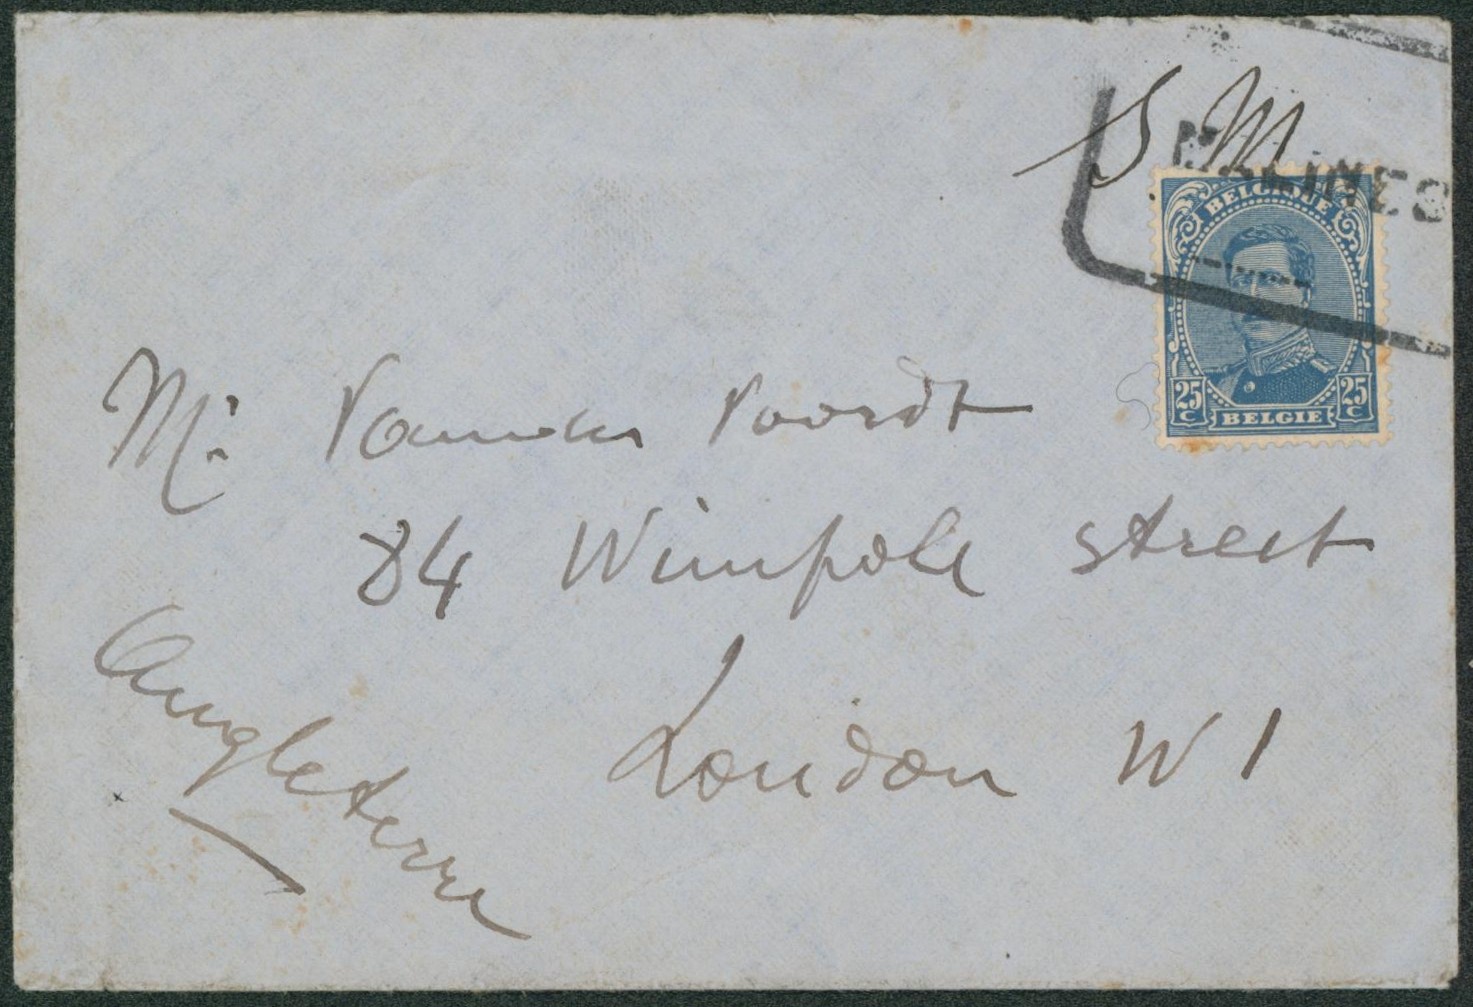 S M
MALINES
BELGIQUE
25 C 25 C
BELGIE
Mr. Vander Voordt
84 Wimpole Street
London W 1
Angleterre